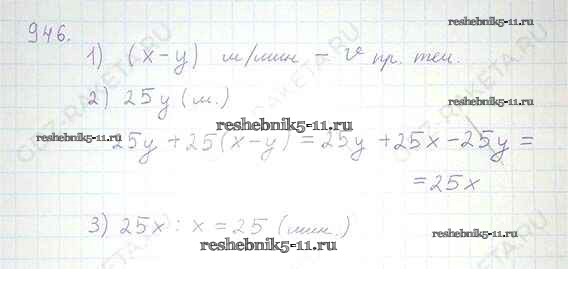 946.
reshebnik5-11.ru
1) (x-y) м/мин - v пр. теч.
2) 25y (м.)
reshebnik5-11.ru
reshebnik5-11.ru
reshebnik5-11.ru
25y + 25(x-y) = 25y + 25x - 25y =
= 25x
3) 25x : x = 25 (мин.)
reshebnik5-11.ru
reshebnik5-11.ru
GDZ-RAKETA.RU